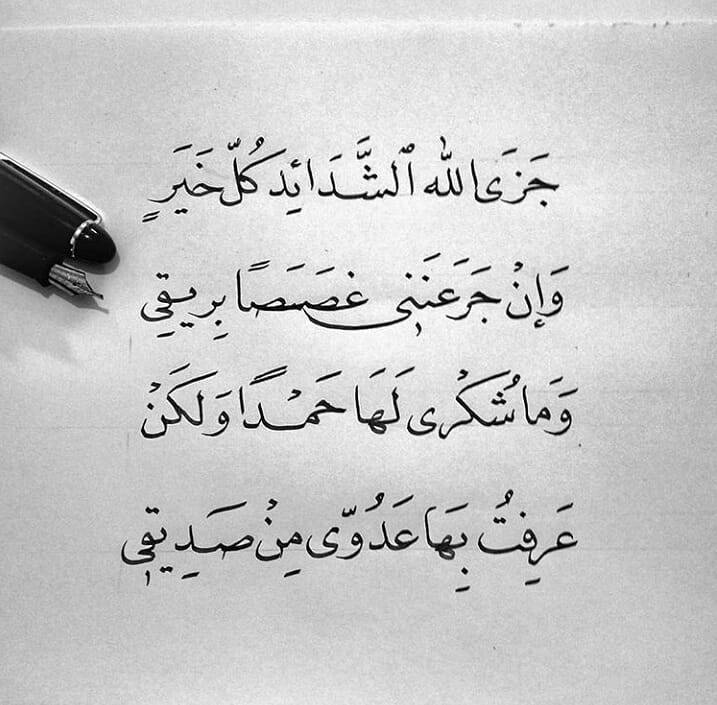 جَزَى الله ٱلشَّدَائِدَ كُلّ خَيَرٍ
وَإِنْ جَرَعَنَنِي غصَصَاً بِرِيقِي
وَمَا شُكْرِى لَهَا حَمْداً وَلَكَنْ
عَرِفتُ بِهَا عَدُوّى مِنْ صَدِيقِي